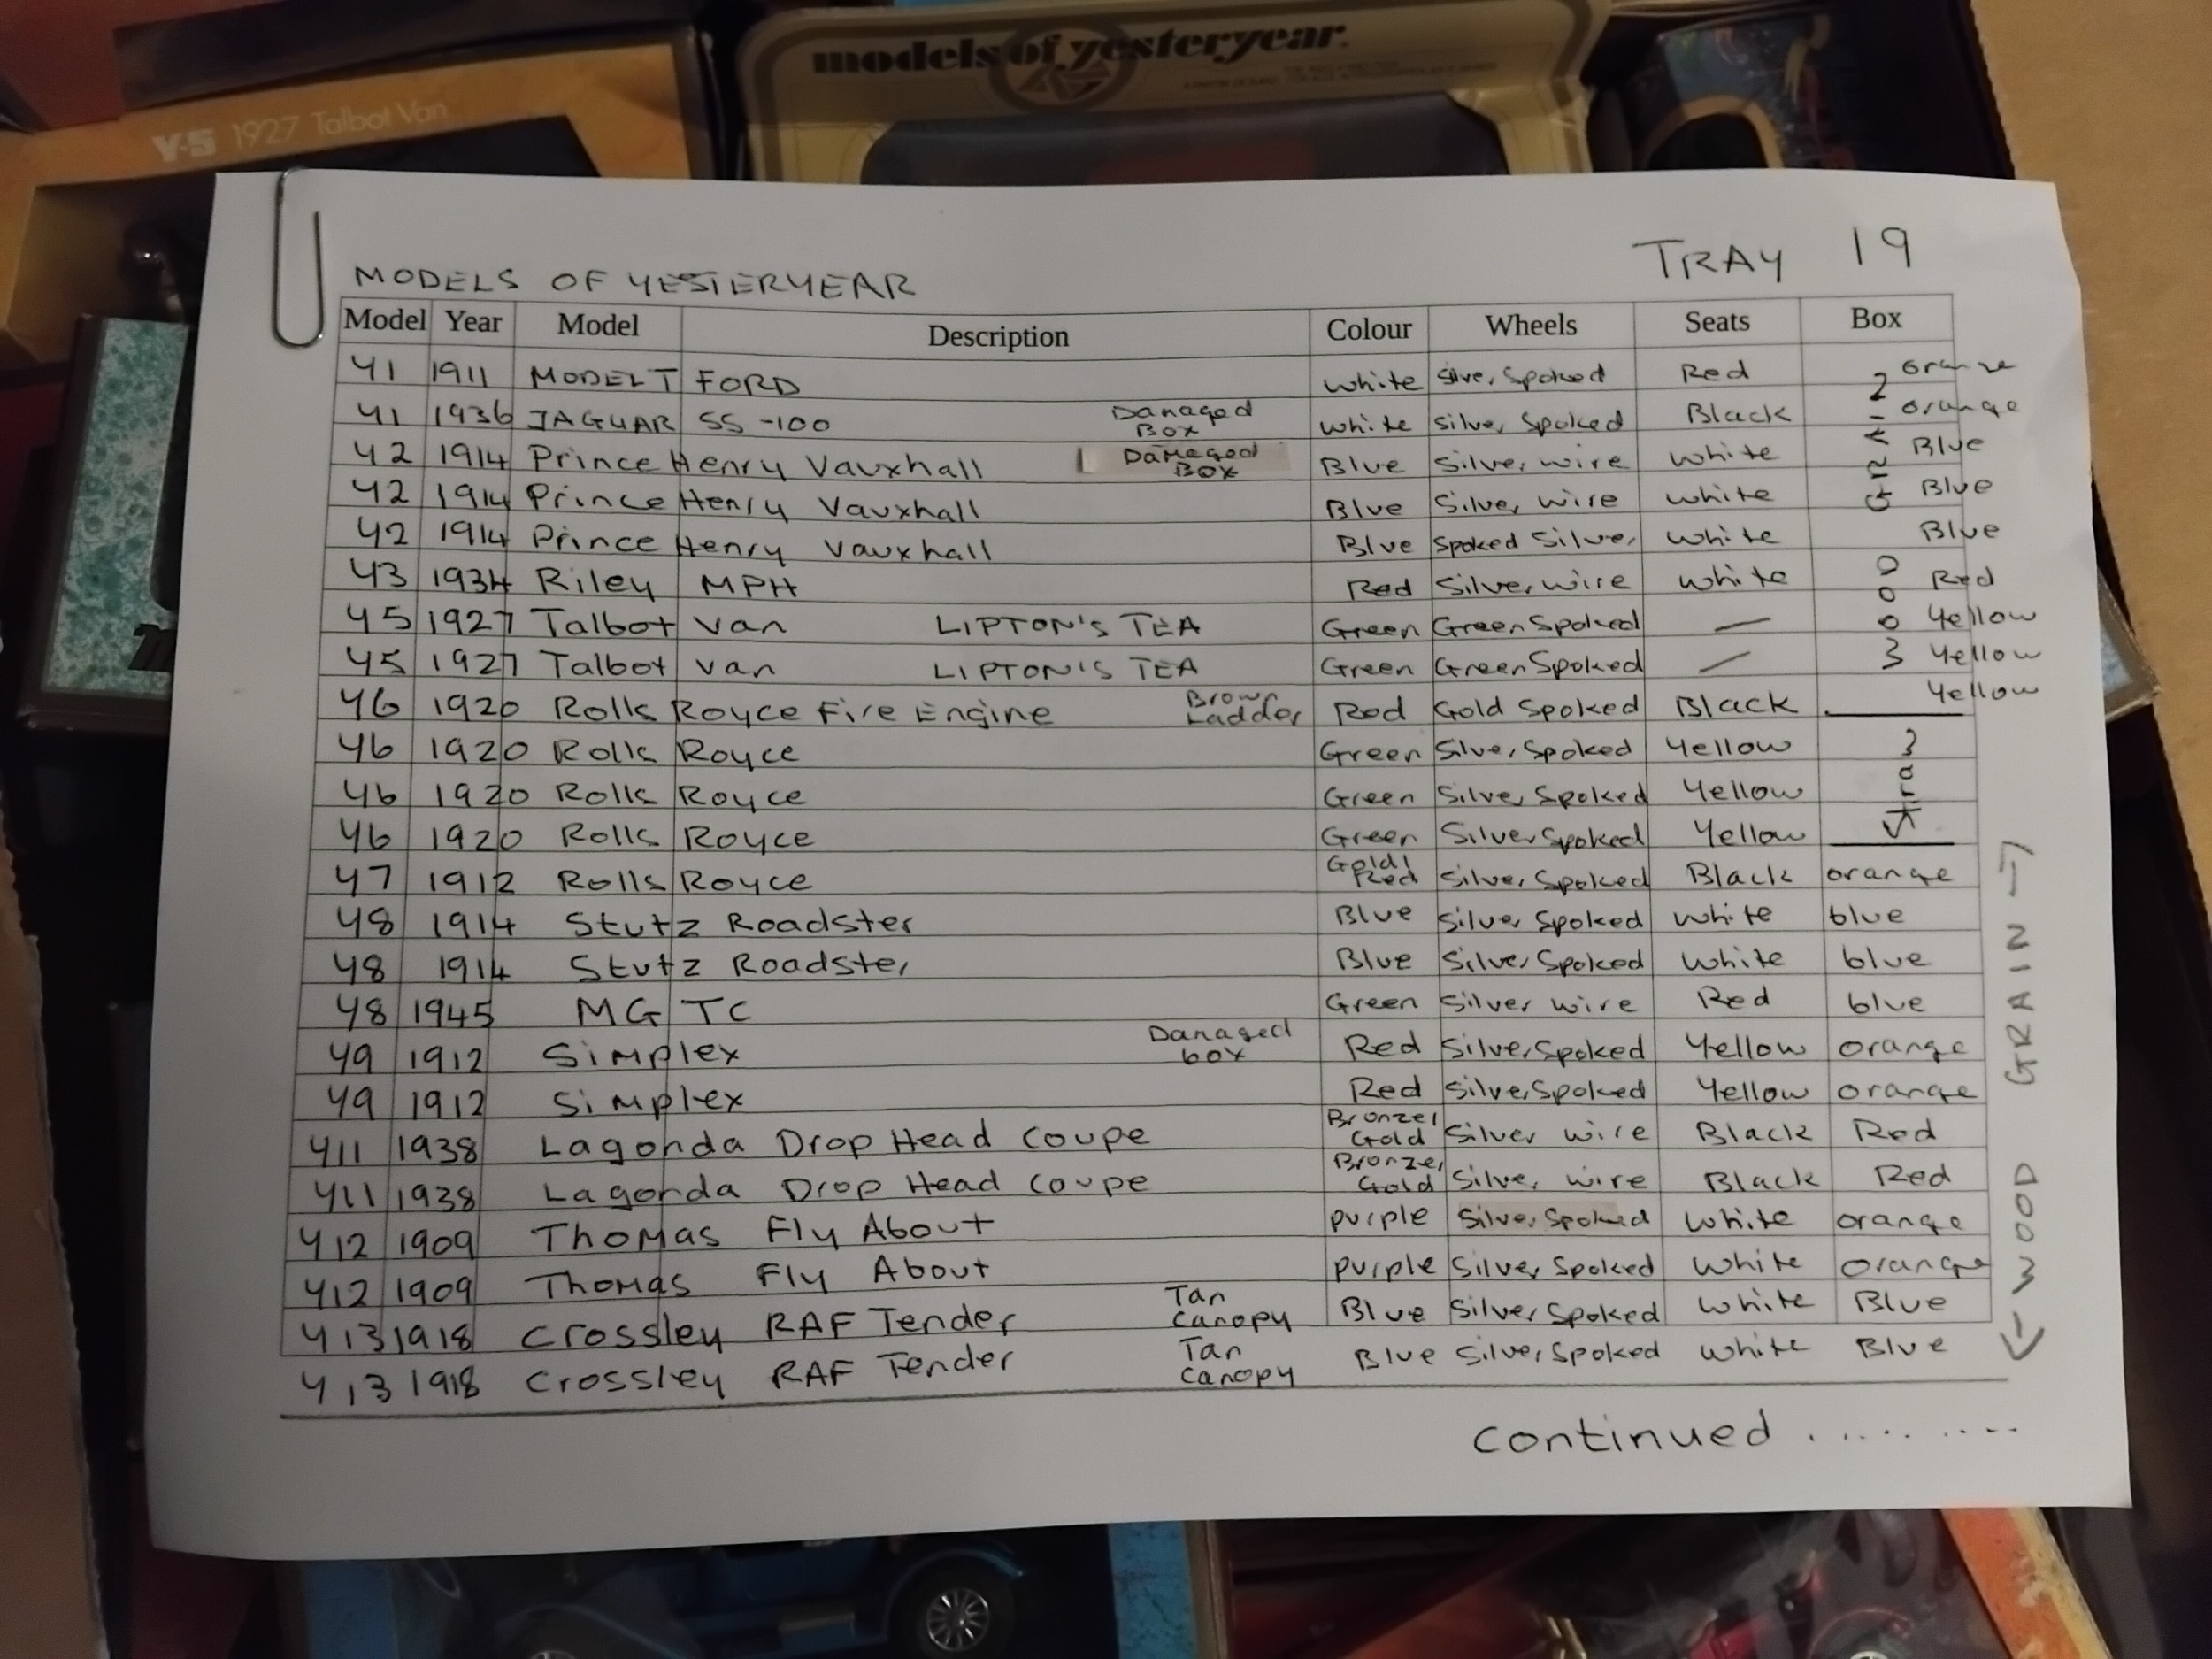 models of yesteryear.
Y-5 1927 Talbot Van
TRAY 19
MODELS OF YESTERYEAR
Model Year Model Description Colour Wheels Seats Box
Y1 1911 MODEL T FORD White Silver Spoked Red orange
Y1 1936 JAGUAR SS-100 Damaged Box White Silver Spoked Black orange
Y2 1914 Prince Henry Vauxhall Damaged Box Blue Silver wire White Blue
Y2 1914 Prince Henry Vauxhall Blue Silver wire White Blue
Y2 1914 Prince Henry Vauxhall Blue Spoked Silver White Blue
Y3 1934 Riley MPH Red Silver wire White Red
Y5 1927 Talbot Van LIPTON'S TEA Green Green Spoked — Yellow
Y5 1927 Talbot Van LIPTON'S TEA Green Green Spoked — Yellow
Y6 1920 Rolls Royce Fire Engine Brown Ladder Red Gold Spoked Black Yellow
Y6 1920 Rolls Royce Green Silver Spoked Yellow
Y6 1920 Rolls Royce Green Silver Spoked Yellow
Y6 1920 Rolls Royce Green Silver Spoked Yellow
Y7 1912 Rolls Royce Gold/Red Silver Spoked Black orange
Y8 1914 Stutz Roadster Blue Silver Spoked White blue
Y8 1914 Stutz Roadster Blue Silver Spoked White blue
Y8 1945 MG TC Green Silver wire Red blue
Y9 1912 Simplex Damaged box Red Silver Spoked Yellow orange
Y9 1912 Simplex Red Silver Spoked Yellow orange
Y11 1938 Lagonda Drop Head Coupe Bronze/Gold Silver wire Black Red
Y11 1938 Lagonda Drop Head Coupe Bronze/Gold Silver wire Black Red
Y12 1909 Thomas Fly About purple Silver Spoked White orange
Y12 1909 Thomas Fly About purple Silver Spoked White orange
Y13 1918 Crossley RAF Tender Tan Canopy Blue Silver Spoked White Blue
Y13 1918 Crossley RAF Tender Tan Canopy Blue Silver Spoked White Blue
WOOD GRAIN
GRAIN
WOOD
Straw
continued .........